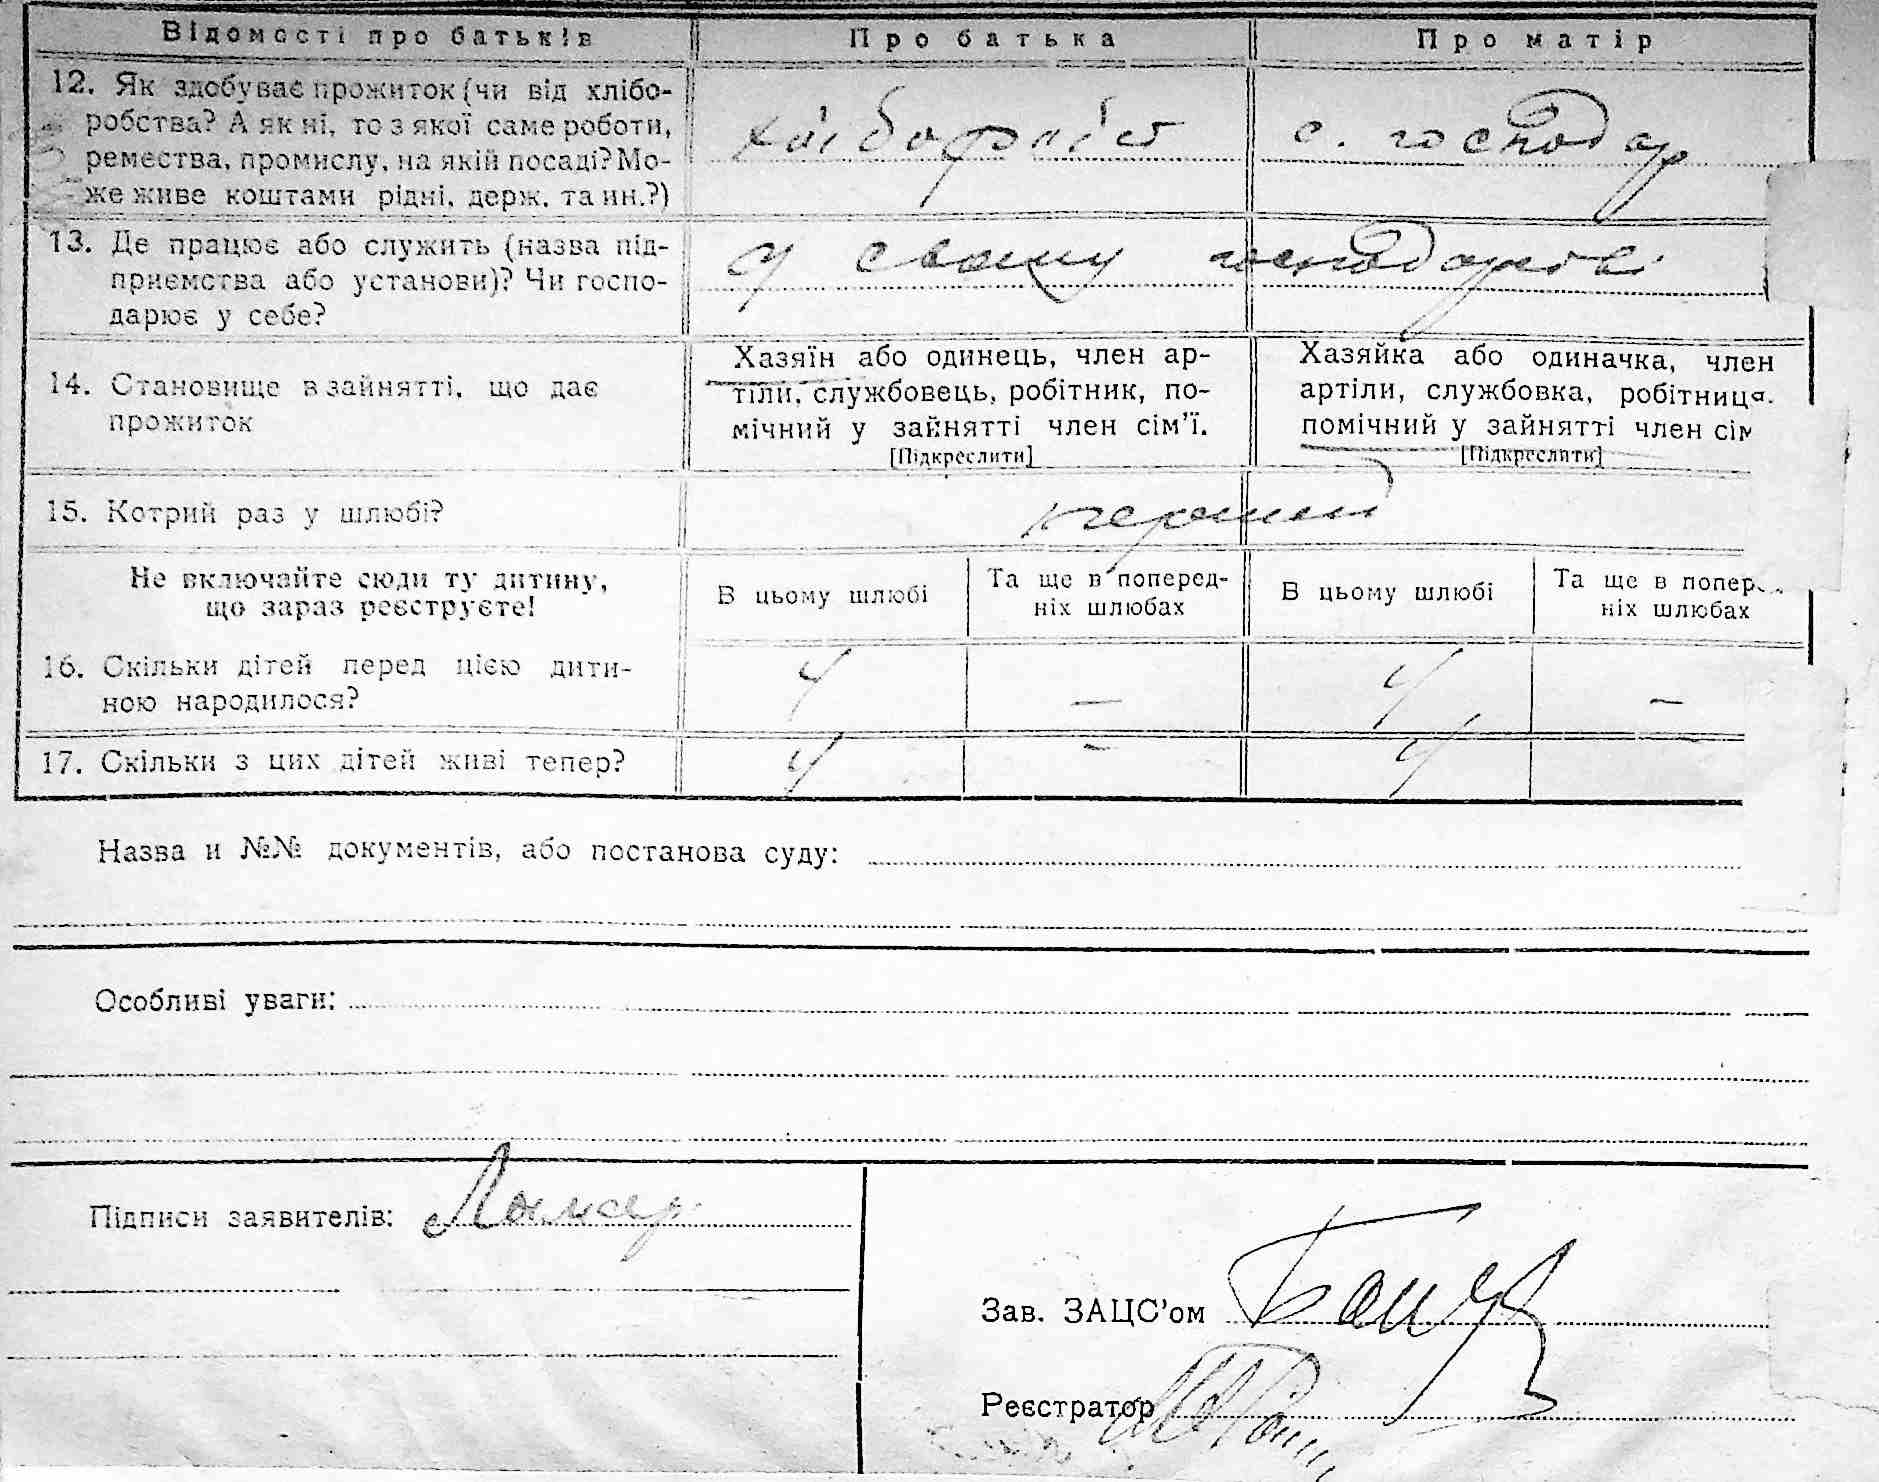 Відомості про батьків Про батька Про матір
12. Як здобуває прожиток (чи від хлібо-
робства? А як ні, то з якої саме роботи,
ремества, промислу, на якій посаді? Мо-
же живе коштами рідні, держ. та ин.?)
хлібороб с. господар
13. Де працює або служить (назва під-
приємства або установи)? Чи госпо-
дарює у себе?
у свому господарстві
14. Становище в зайнятті, що дає
прожиток
Хазяїн або одинець, член ар-
тіли, службовець, робітник, по-
мічний у зайнятті член сім'ї.
[Підкреслити]
Хазяйка або одиначка, член
артіли, службовка, робітниця.
помічний у зайнятті член сім
[Підкреслити]
15. Котрий раз у шлюбі?
перший
Не включайте сюди ту дитину,
що зараз реєструєте!
В цьому шлюбі
Та ще в поперед-
ніх шлюбах
В цьому шлюбі
Та ще в попер
ніх шлюбах
16. Скільки дітей перед цією дити-
ною народилося?
4 — 4 —
17. Скільки з цих дітей живі тепер? 4 — 4
Назва и №№ документів, або постанова суду:
Особливі уваги:
Підписи заявителів:
Зав. ЗАЦС'ом
Реєстратор